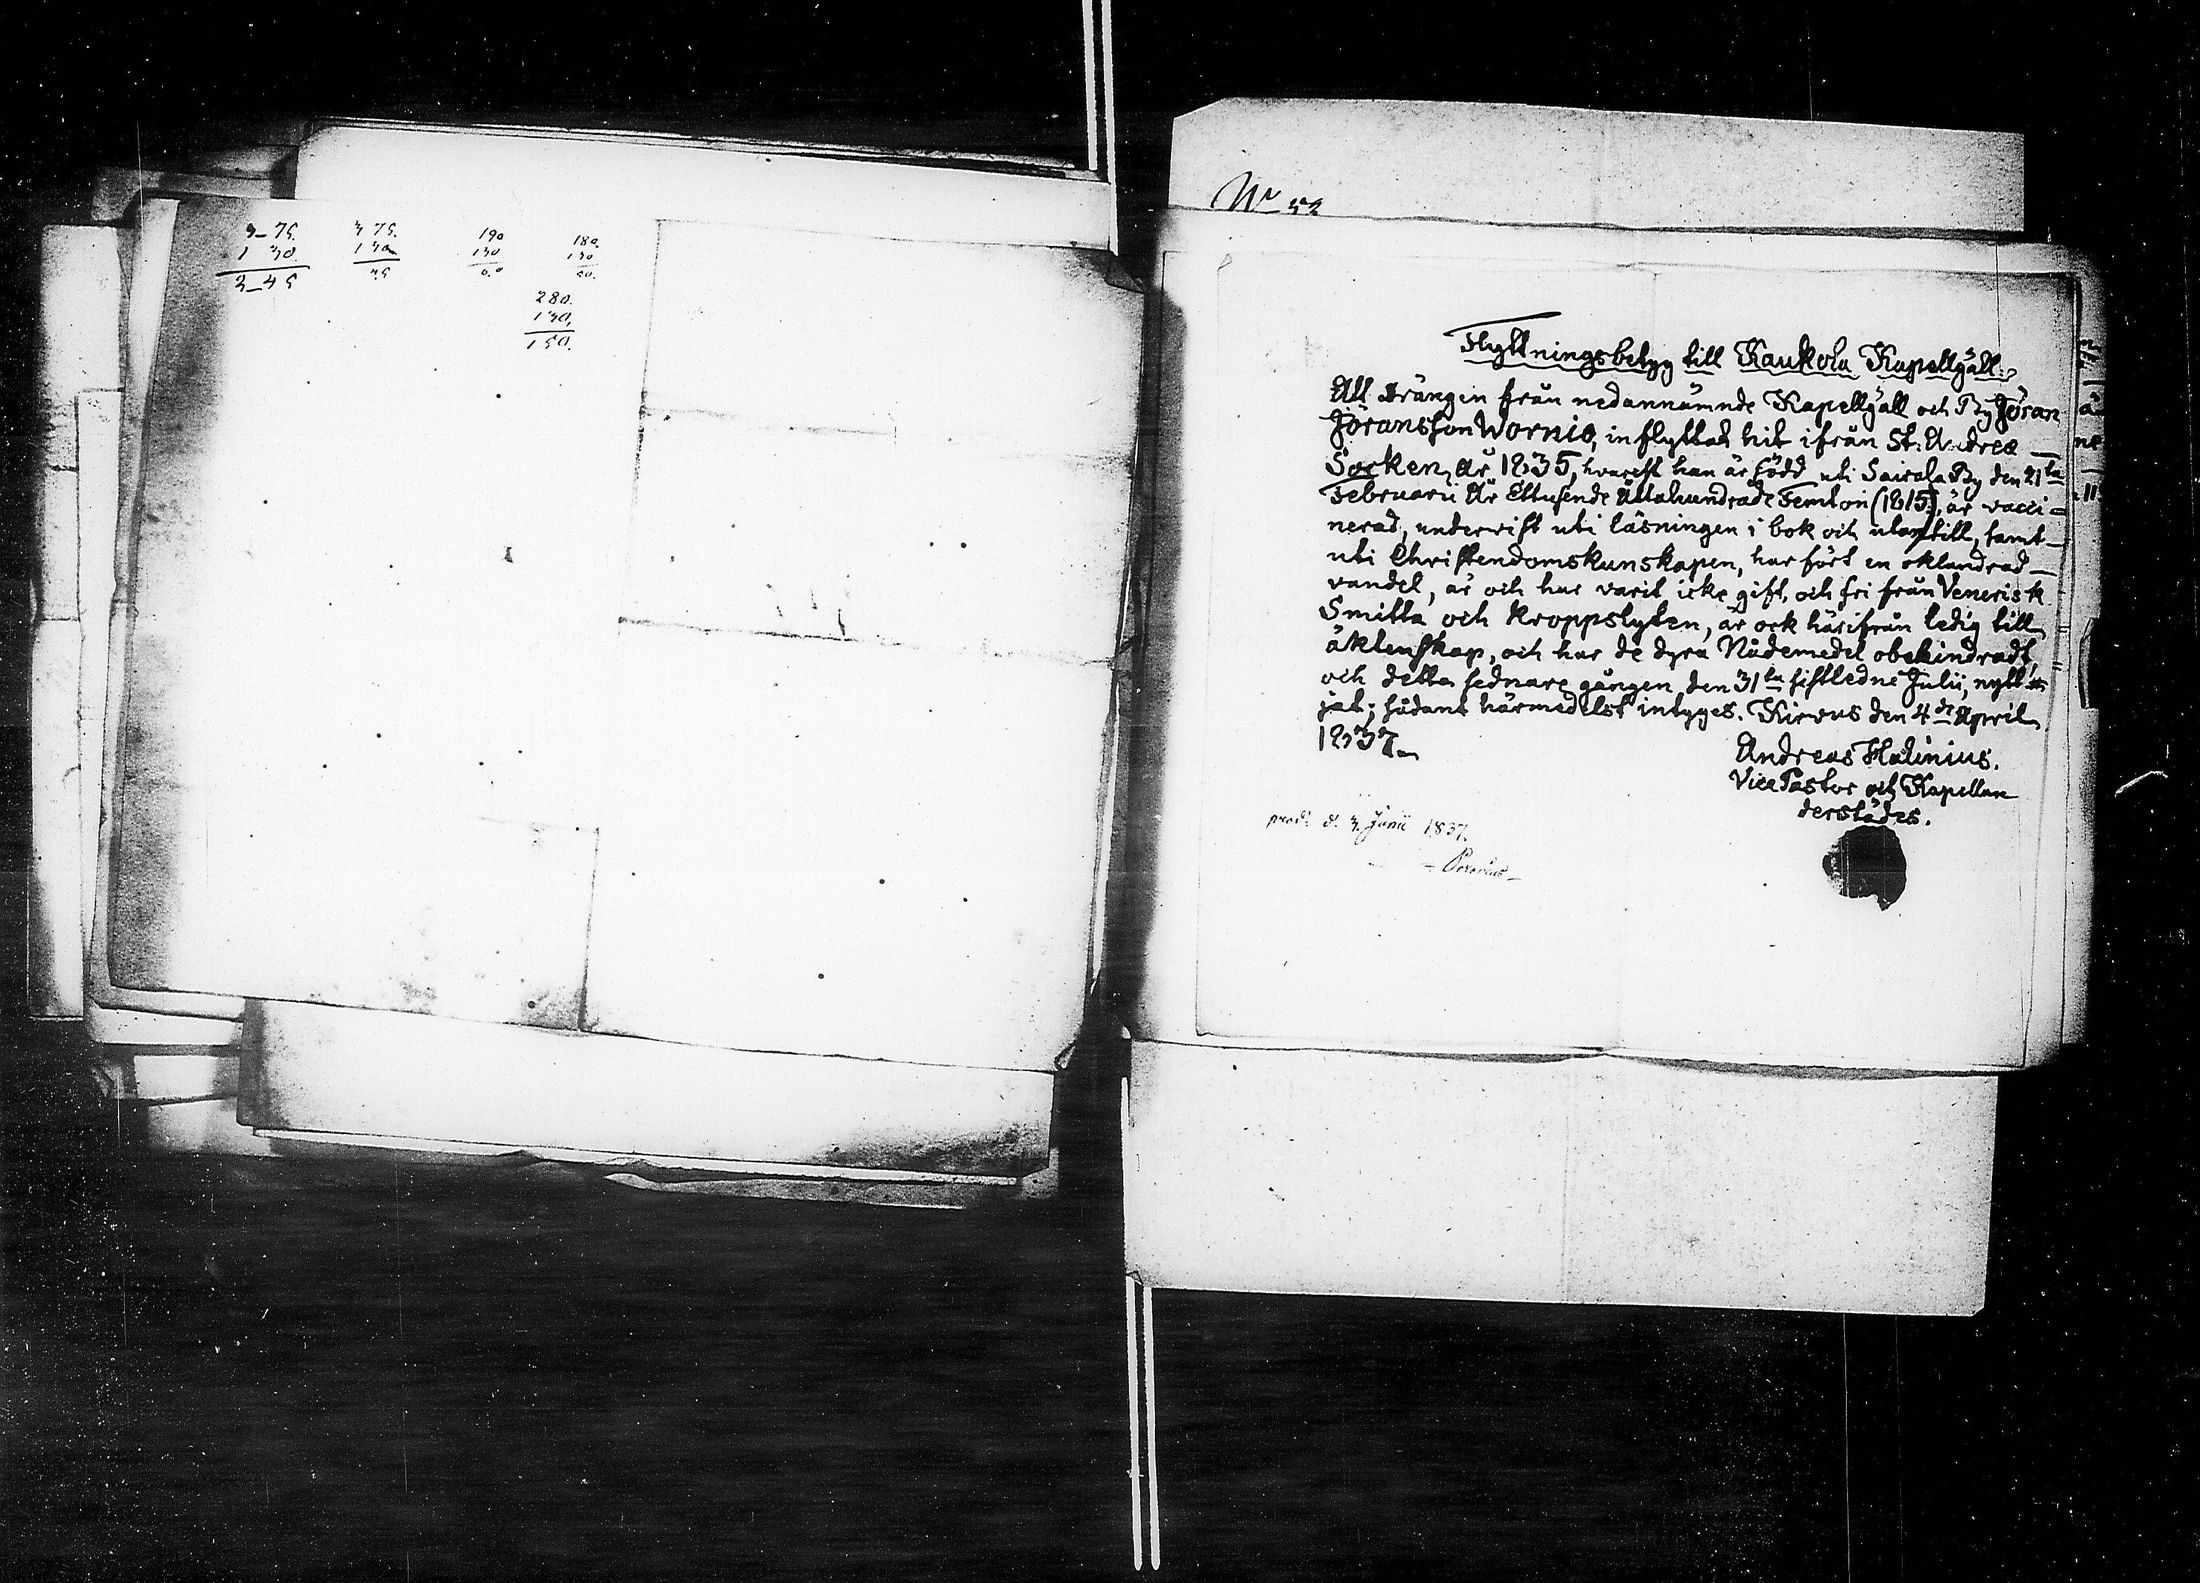 3–75. 3 75. 190 180.
1 30. 130. 130 130
2–45 45 60 50.
280.
130.
150.
No 52
Flyttningsbetyg till Kaukola Kapellgäll.
Att Drängen från nedannämnde Kapellgäll och By Jöran
Jöransson Wornio, inflyttad hit ifrån St: Andreæ
Socken, År 1835, hvarest han är född uti Sairala By den 21ta
Februarii År Ettusende Åttahundrade Femton (1815), är vacci=
nerad, underwist uti läsningen i bok och utantill, samt
uti Christendomskunskapen, har fört en oklandrad
vandel, är och har varit icke gift, och fri från Venerisk
Smitta och Kroppslyten, är ock härifrån ledig till
äktenskap, och har de dyra Nådemedel obehindradt,
och detta sednare gången den 31ta sistledne Julii, nytt
jat; sådant härmedelst intyges. Kirvus den 4de April
1837.
Andreas Halinius.
Vice Pastor och Kapellan
derstädes.
prod: d. 3. Junii 1837.